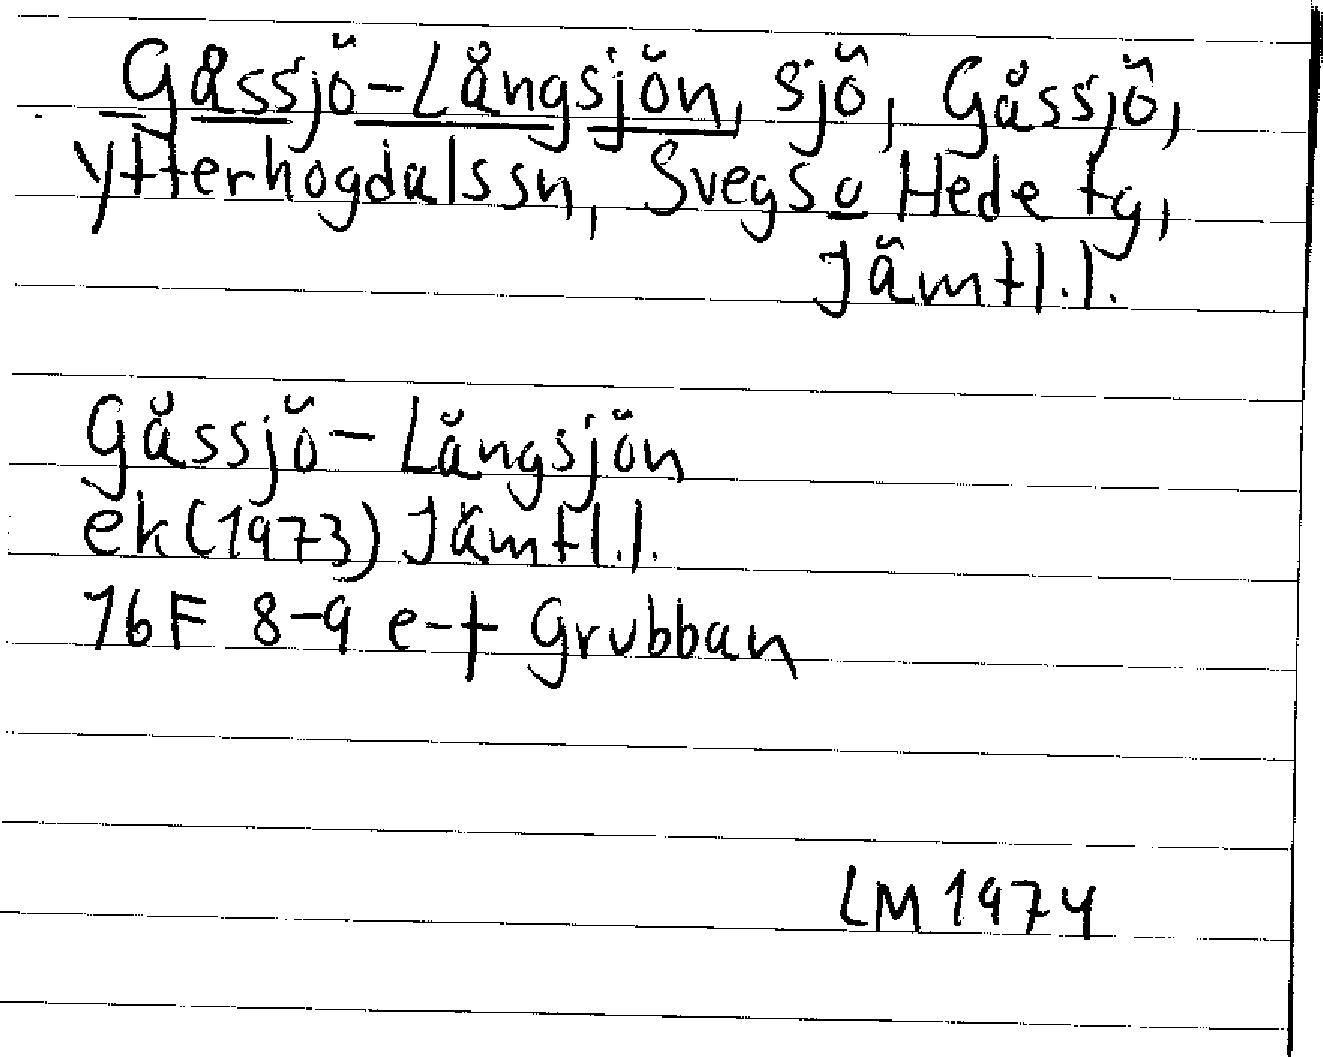 Gåssjö-Långsjön, sjö, Gåssjö,
Ytterhogdals sn, Svegs o Hede tg,
Jämtl.l.
Gåssjö-Långsjön
ek (1973) Jämtl.l.
16F 8-9 e-f Grubban
LM 1974